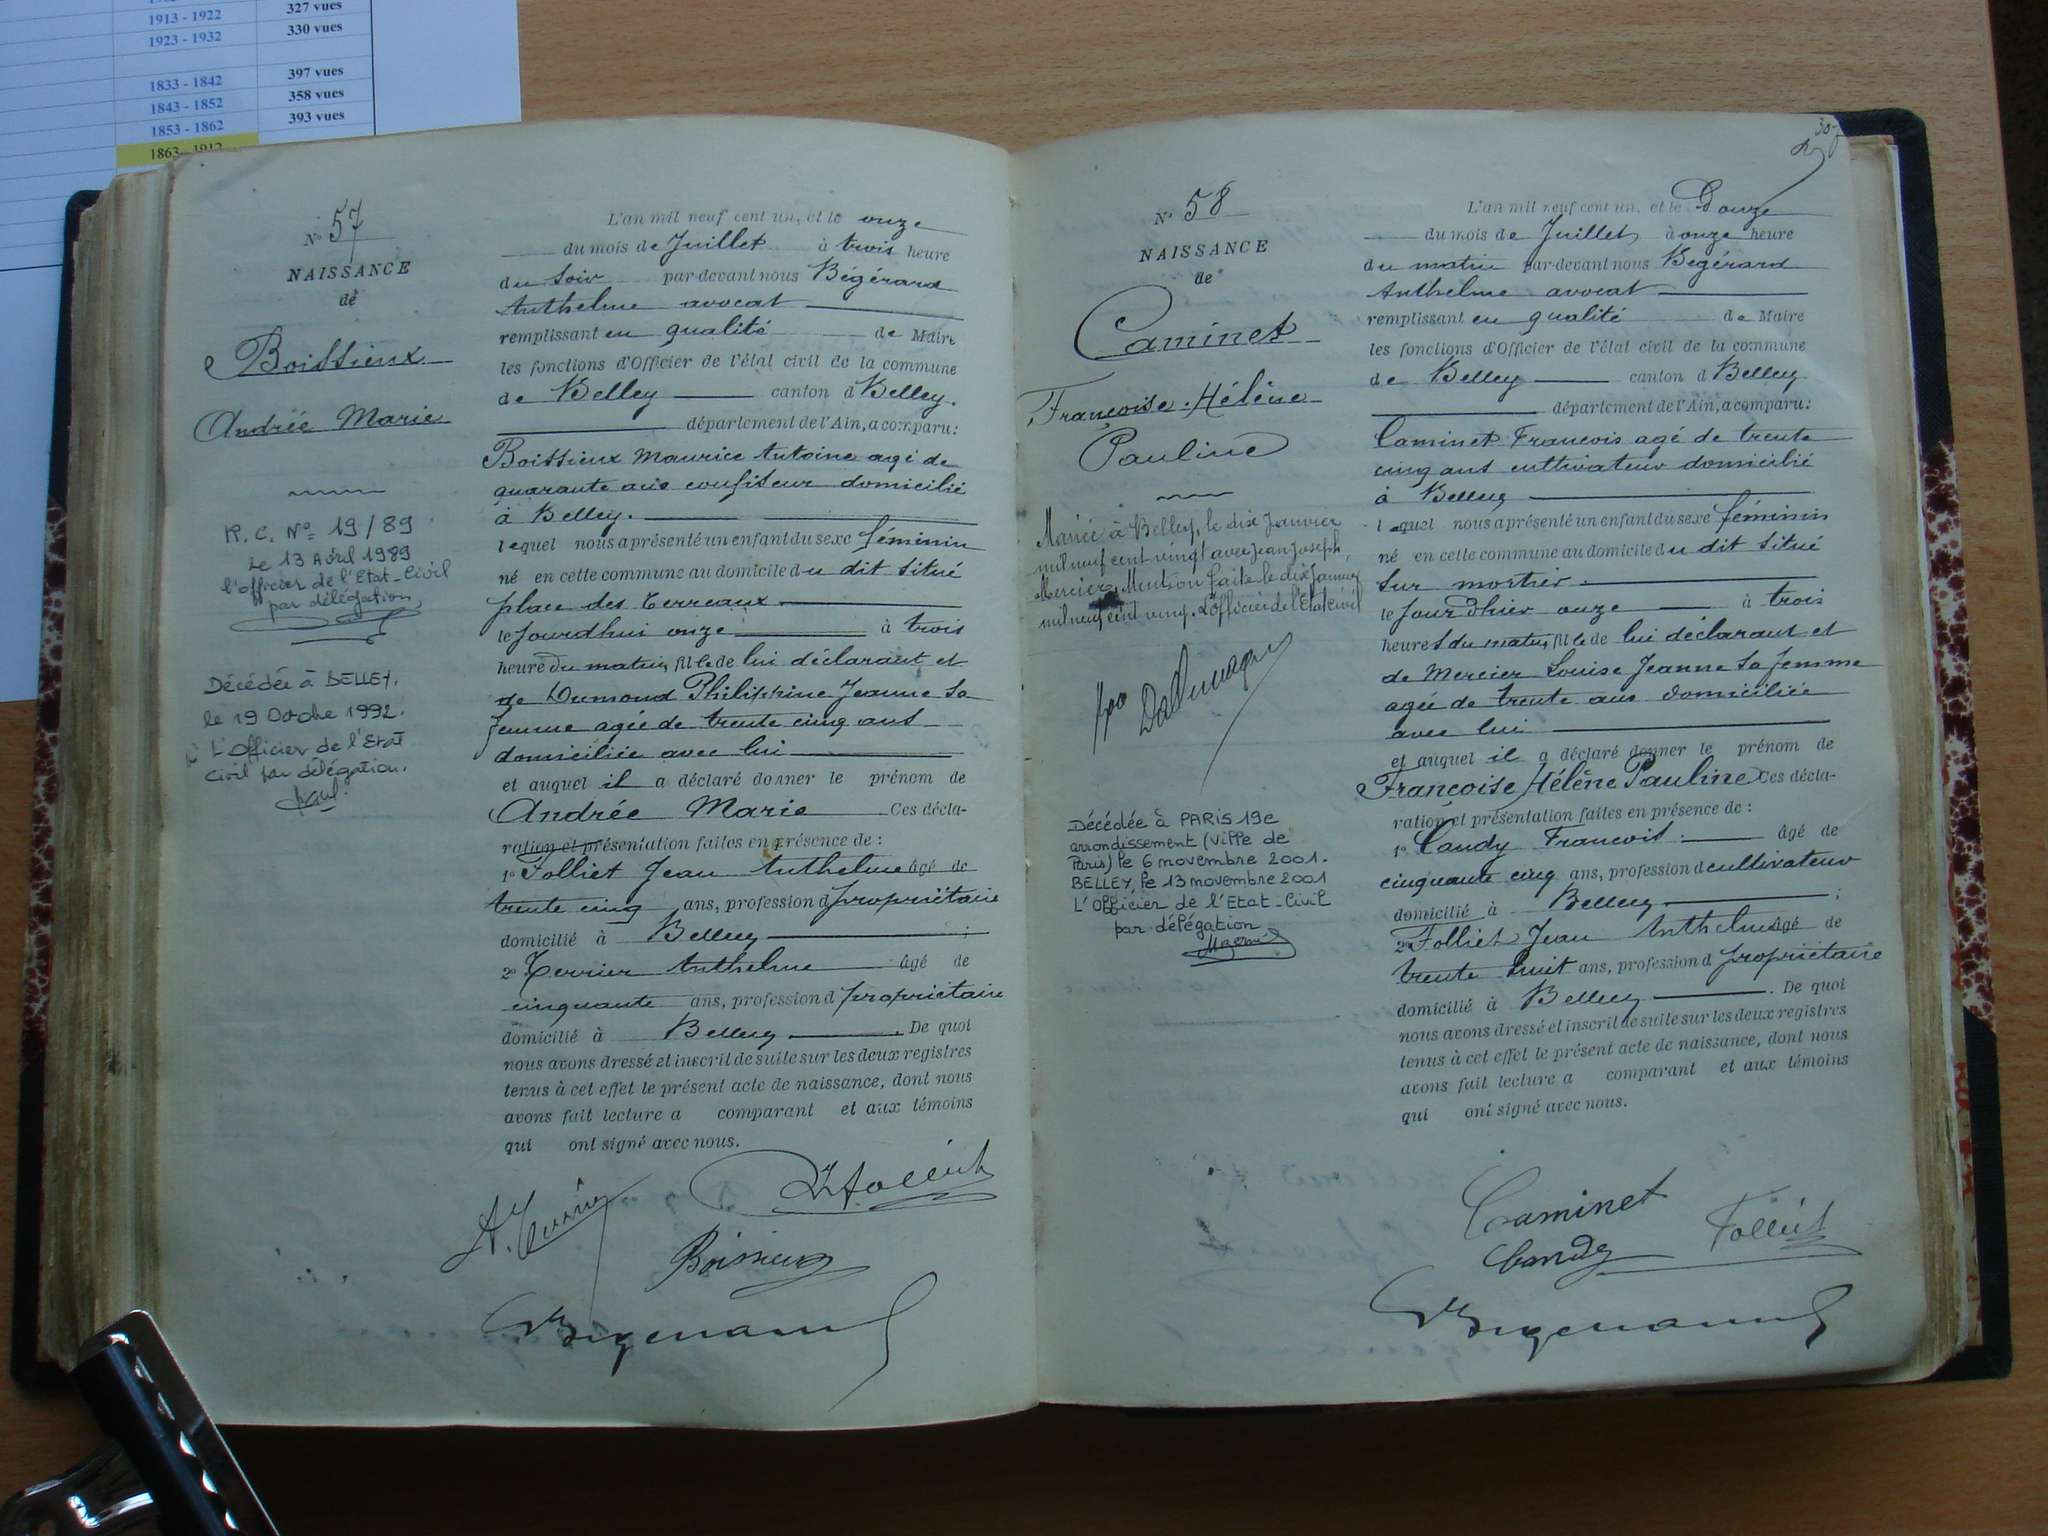 1913 - 1922 327 vues
1923 - 1932 330 vues
1833 - 1842 397 vues
1843 - 1852 358 vues
1853 - 1862 393 vues
1863 - 1912
N° 57
NAISSANCE
de
Boissieux
Andrée Marie
R. C. N° 19/89
Le 13 Avril 1989
l'officier de l'Etat-Civil
par délégation,
Décédée à BELLEY.
le 19 Octobre 1992.
L'Officier de l'Etat
Civil par délégation.
L'an mil neuf cent un, et le onze
du mois de Juillet à trois heure
du soir par-devant nous Bégérard
Anthelme avocat
remplissant en qualité de Maire
les fonctions d'Officier de l'état civil de la commune
de Belley canton d Belley.
département de l'Ain, a comparu:
Boissieux Maurice Antoine agé de
quarante ans confiseur domicilié
à Belley.
lequel nous a présenté un enfant du sexe féminin
né en cette commune au domicile du dit situé
place des Terreaux
le jourdhui onze à trois
heure du matin, fille de lui déclarant et
de Dumond Philippine Jeanne sa
femme agée de trente cinq ans
domiciliée avec lui
et auquel il a déclaré donner le prénom de
Andrée Marie Ces décla-
ration et présentation faites en présence de :
1° Folliet Jean Anthelme âgé de
trente cinq ans, profession d propriétaire
domicilié à Belley ;
2° Terrier Anthelme âgé de
cinquante ans, profession d propriétaire
domicilié à Belley . De quoi
nous avons dressé et inscrit de suite sur les deux registres
tenus à cet effet le présent acte de naissance, dont nous
avons fait lecture a comparant et aux témoins
qui ont signé avec nous.
Boissieux
N° 58
NAISSANCE
de
Caminet
Françoise Hélène
Pauline
Mariée à Belley, le dix Janvier
mil neuf cent vingt avec Jean Joseph
Mercier. Mention faite le dix Janvier
mil neuf cent vingt. L'officier de l'Etat Civil
Décédée à PARIS 19e
arrondissement (Ville de
Paris) le 6 novembre 2001.
BELLEY, le 13 novembre 2001
L'Officier de l'Etat-Civil
par délégation
L'an mil neuf cent un, et le Douze
du mois de Juillet à onze heure
du matin par-devant nous Bégérard
Anthelme avocat
remplissant en qualité de Maire
les fonctions d'Officier de l'état civil de la commune
de Belley canton d Belley
département de l'Ain, a comparu:
Caminet François agé de trente
cinq ans cultivateur domicilié
à Belley
lequel nous a présenté un enfant du sexe féminin
né en cette commune au domicile du dit situé
sur mortier
le jour d'hier onze à trois
heures du matin, fille de lui déclarant et
de Mercier Louise Jeanne sa femme
agée de trente ans domiciliée
avec lui
et auquel il a déclaré donner le prénom de
Françoise Hélène Pauline Ces décla-
ration et présentation faites en présence de :
1° Candy François âgé de
cinquante cinq ans, profession d cultivateur
domicilié à Belley ;
2° Folliet Jean Anthelme âgé de
trente huit ans, profession d propriétaire
domicilié à Belley . De quoi
nous avons dressé et inscrit de suite sur les deux registres
tenus à cet effet le présent acte de naissance, dont nous
avons fait lecture a comparant et aux témoins
qui ont signé avec nous.
Caminet
Candy Folliet